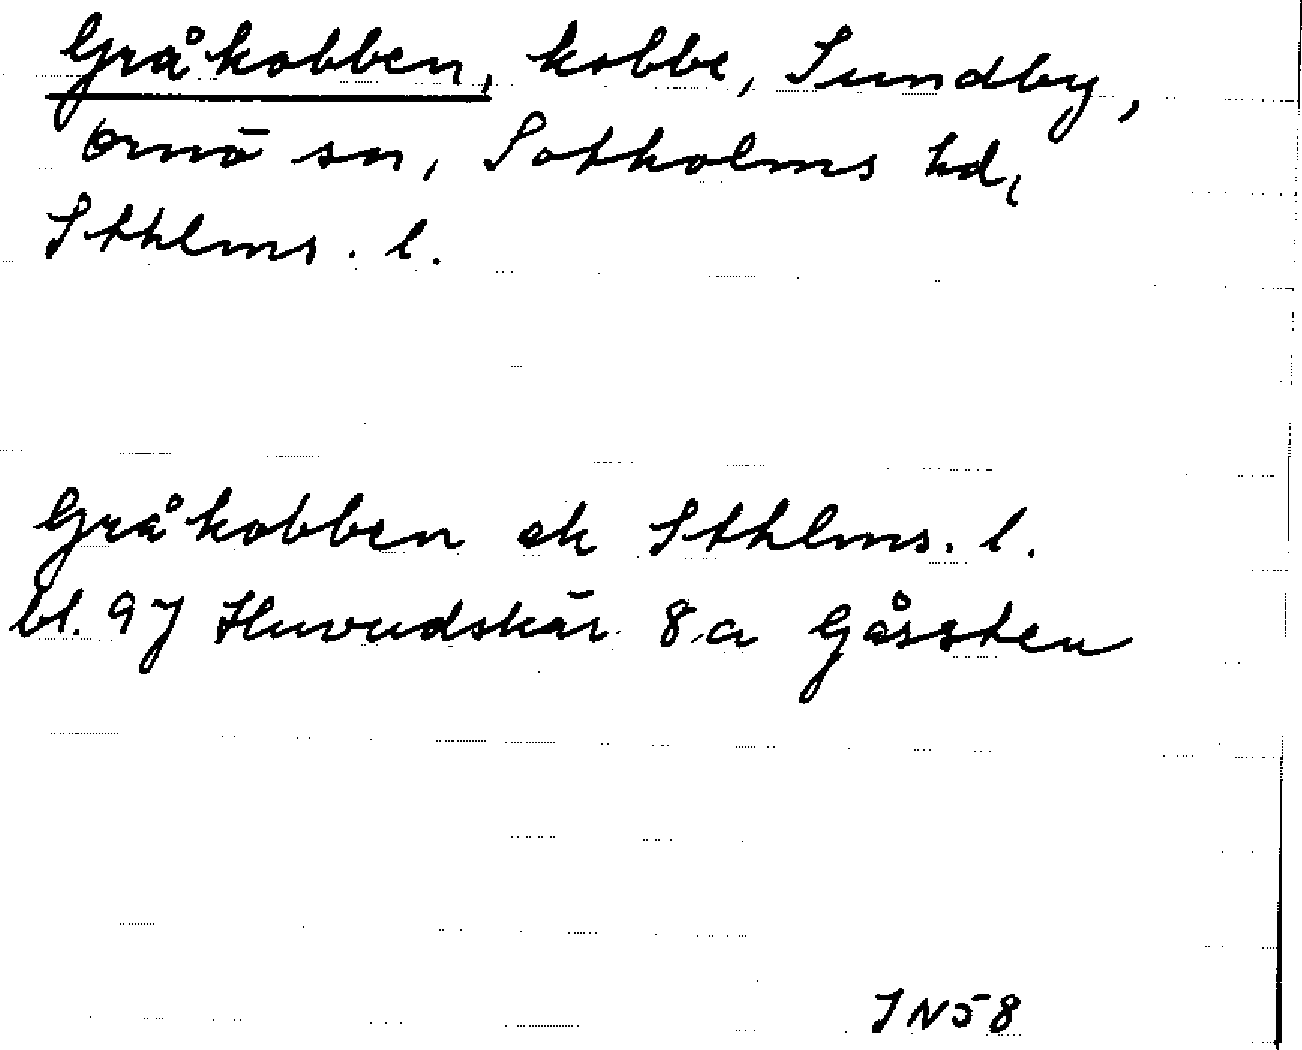 Gråkobben, kobbe, Sundby,
Ornö sn, Sotholms hd,
Sthlms. l.
Gråkobben ek Sthlms. l.
bl. 97 Huvudskär 8 a Gåssten
IN58